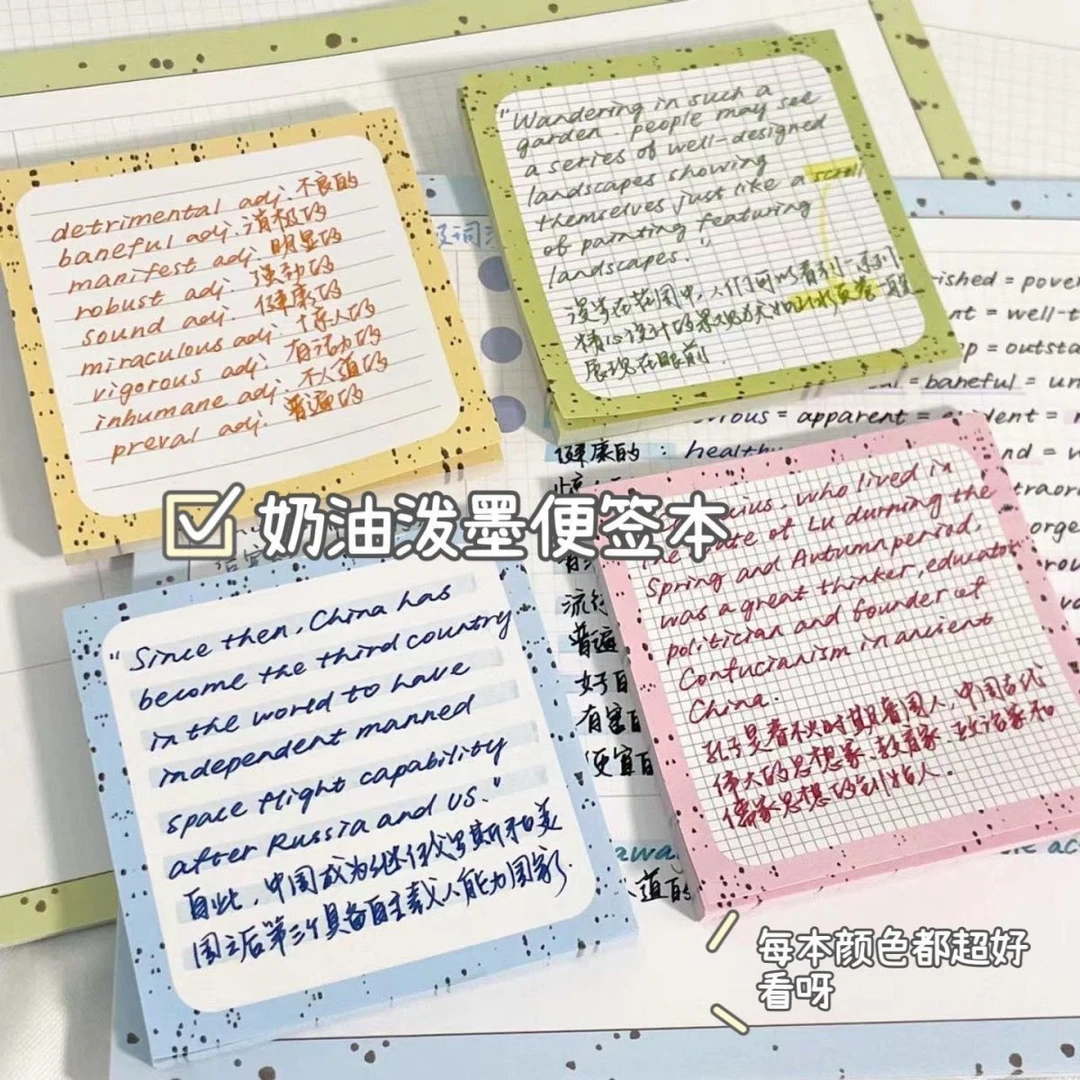 detrimental adj. 不良的
baneful adj. 消极的
manifest adj. 明显的
robust adj. 强劲的
sound adj. 健康的
miraculous adj. 惊人的
vigorous adj. 有活力的
inhumane adj. 不人道的
preval adj. 普遍的
"Wandering in such a
garden people may see
a series of well-designed
landscapes showing
themselves just like a scroll
of painting featuring
landscapes."
漫步在花园中，人们可以看到一系列
精心设计的景观犹如山水画卷一般
展现在眼前
ished = pover
nt = well-t
p = outsta
al = baneful = un
vious = apparent = evident =
健康的 : healthy
nd = w
traor
orge
rou
流行
普遍
好
有害
便宜
awa
人道的
☑ 奶油泼墨便签本
"Since then, China has
become the third country
in the world to have
independent manned
space flight capability
after Russia and US."
自此，中国成为继俄罗斯和美
国之后第三个具备自主载人能力国家
cius, who lived in
the state of Lu durning the
Spring and Autumn period,
was a great thinker, educator
politician and founder of
Confucianism in ancient
China.
孔子是春秋时期鲁国人，中国古代
伟大的思想家、教育家、政治家和
儒家思想的创始人.
每本颜色都超好
看呀